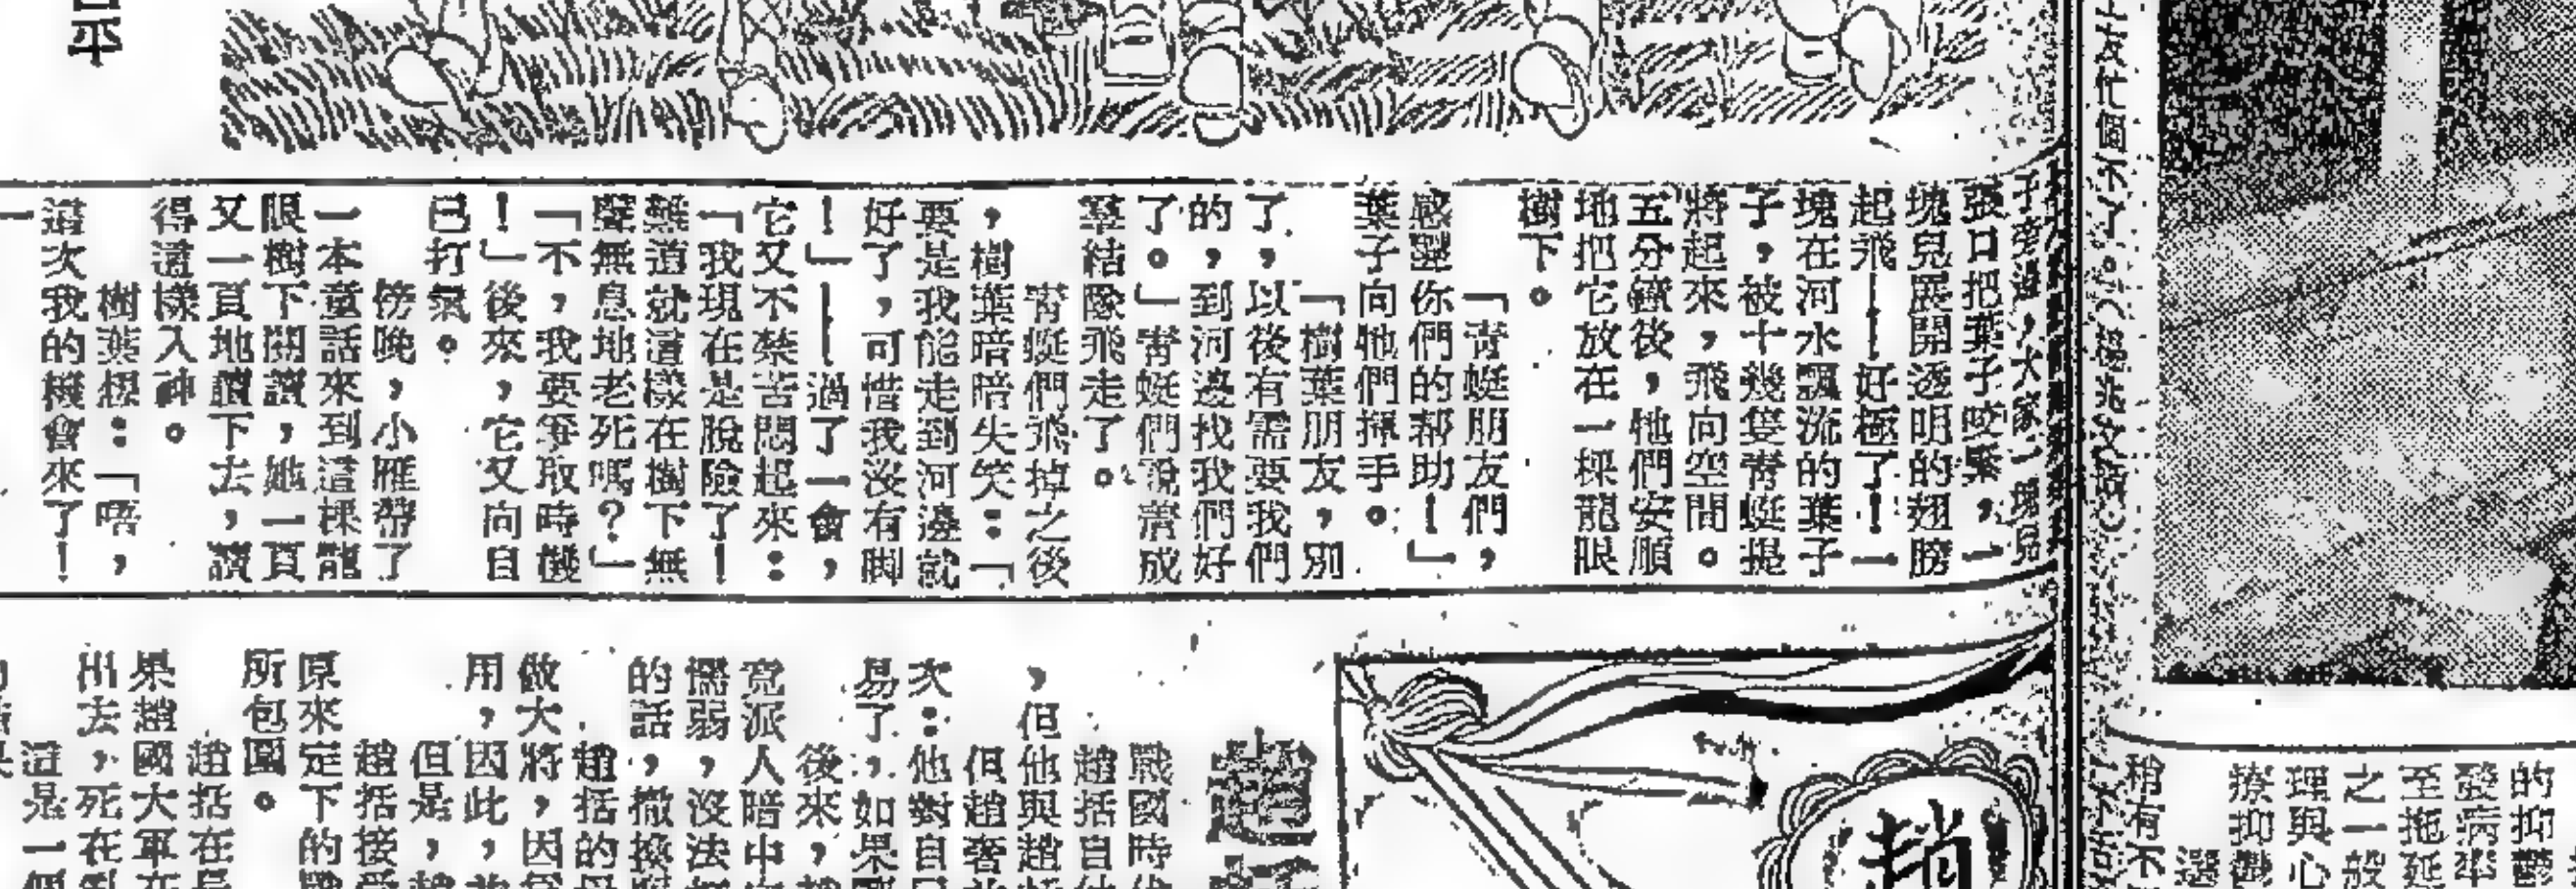 子旁邊，大家一塊兒
張口把葉子咬緊，一
塊兒展開透明的翅膀
起飛——好極了！一
塊在河水飄流的葉子
子，被十幾隻青蜓提
將起來，飛向空間。
五分鐘後，牠們安順
地把它放在一棵龍眼
樹下。
「青蜓朋友們，
感謝你們的帮助！」
葉子向牠們揮手。
「樹葉朋友，別
了，以後有需要我們
的，到河邊找我們好
了。」青蜓們說着成
羣結隊飛走了。
青蜓們飛掉之後
，樹葉暗暗失笑：「
要是我能走到河邊就
好了，可惜我沒有脚
！」——過了一會，
它又不禁苦悶起來：
「我現在是脫險了！
難道就這樣在樹下無
聲無息地老死嗎？」
「不，我要爭取時機
！」後來，它又向自
己打氣。
傍晚，小雁帶了
一本童話來到這棵龍
眼樹下閱讀，她一頁
又一頁地讀下去，讀
得這樣入神。
樹葉想：「唔，
這次我的機會來了！
趙
戰國時
趙括自
，但他與趙
但趙奢
次：他對自
易了，如果
後來，
竟派人暗中
懦弱，沒法
的話，撤換
趙括的母
做大將，因
用，因此，
但是，
趙括接受
原來定下的戰
所包圍。
趙括在長
果趙國大軍在
出去，死在亂
這是一個
的抑鬱
發病率
至拖延
之一般
理與心
療抑鬱
選
稍有不
平